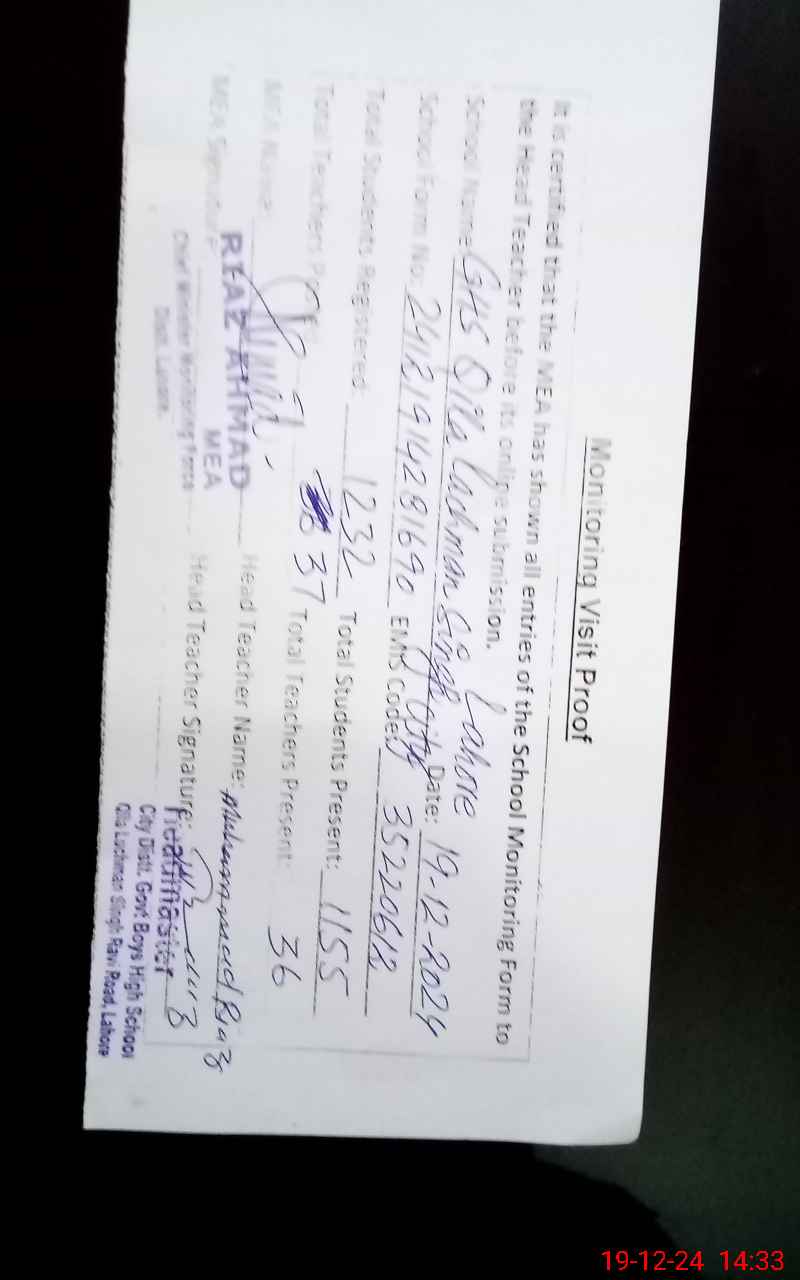 Monitoring Visit Proof
It is certified that the MEA has shown all entries of the School Monitoring Form to
the Head Teacher before its online submission.
School Name: GHS Qilla Lachman Singh City Lahore Date: 19-12-2024
School Form No: 24121914281690 EMIS Code: 35220612
Total Students Registered: 1232 Total Students Present: 1155
Total Teachers 37 Total Teachers Present: 36
MEA Name: Head Teacher Name: Muhammad Riaz
MEA Signature: Head Teacher Signature:
RIAZ AHMAD
MEA
Chief Minister Monitoring Force
Distt. Lahore.
Headmaster
City Distt. Govt Boys High School
Qila Lachman Singh Ravi Road, Lahore
19-12-24 14:33